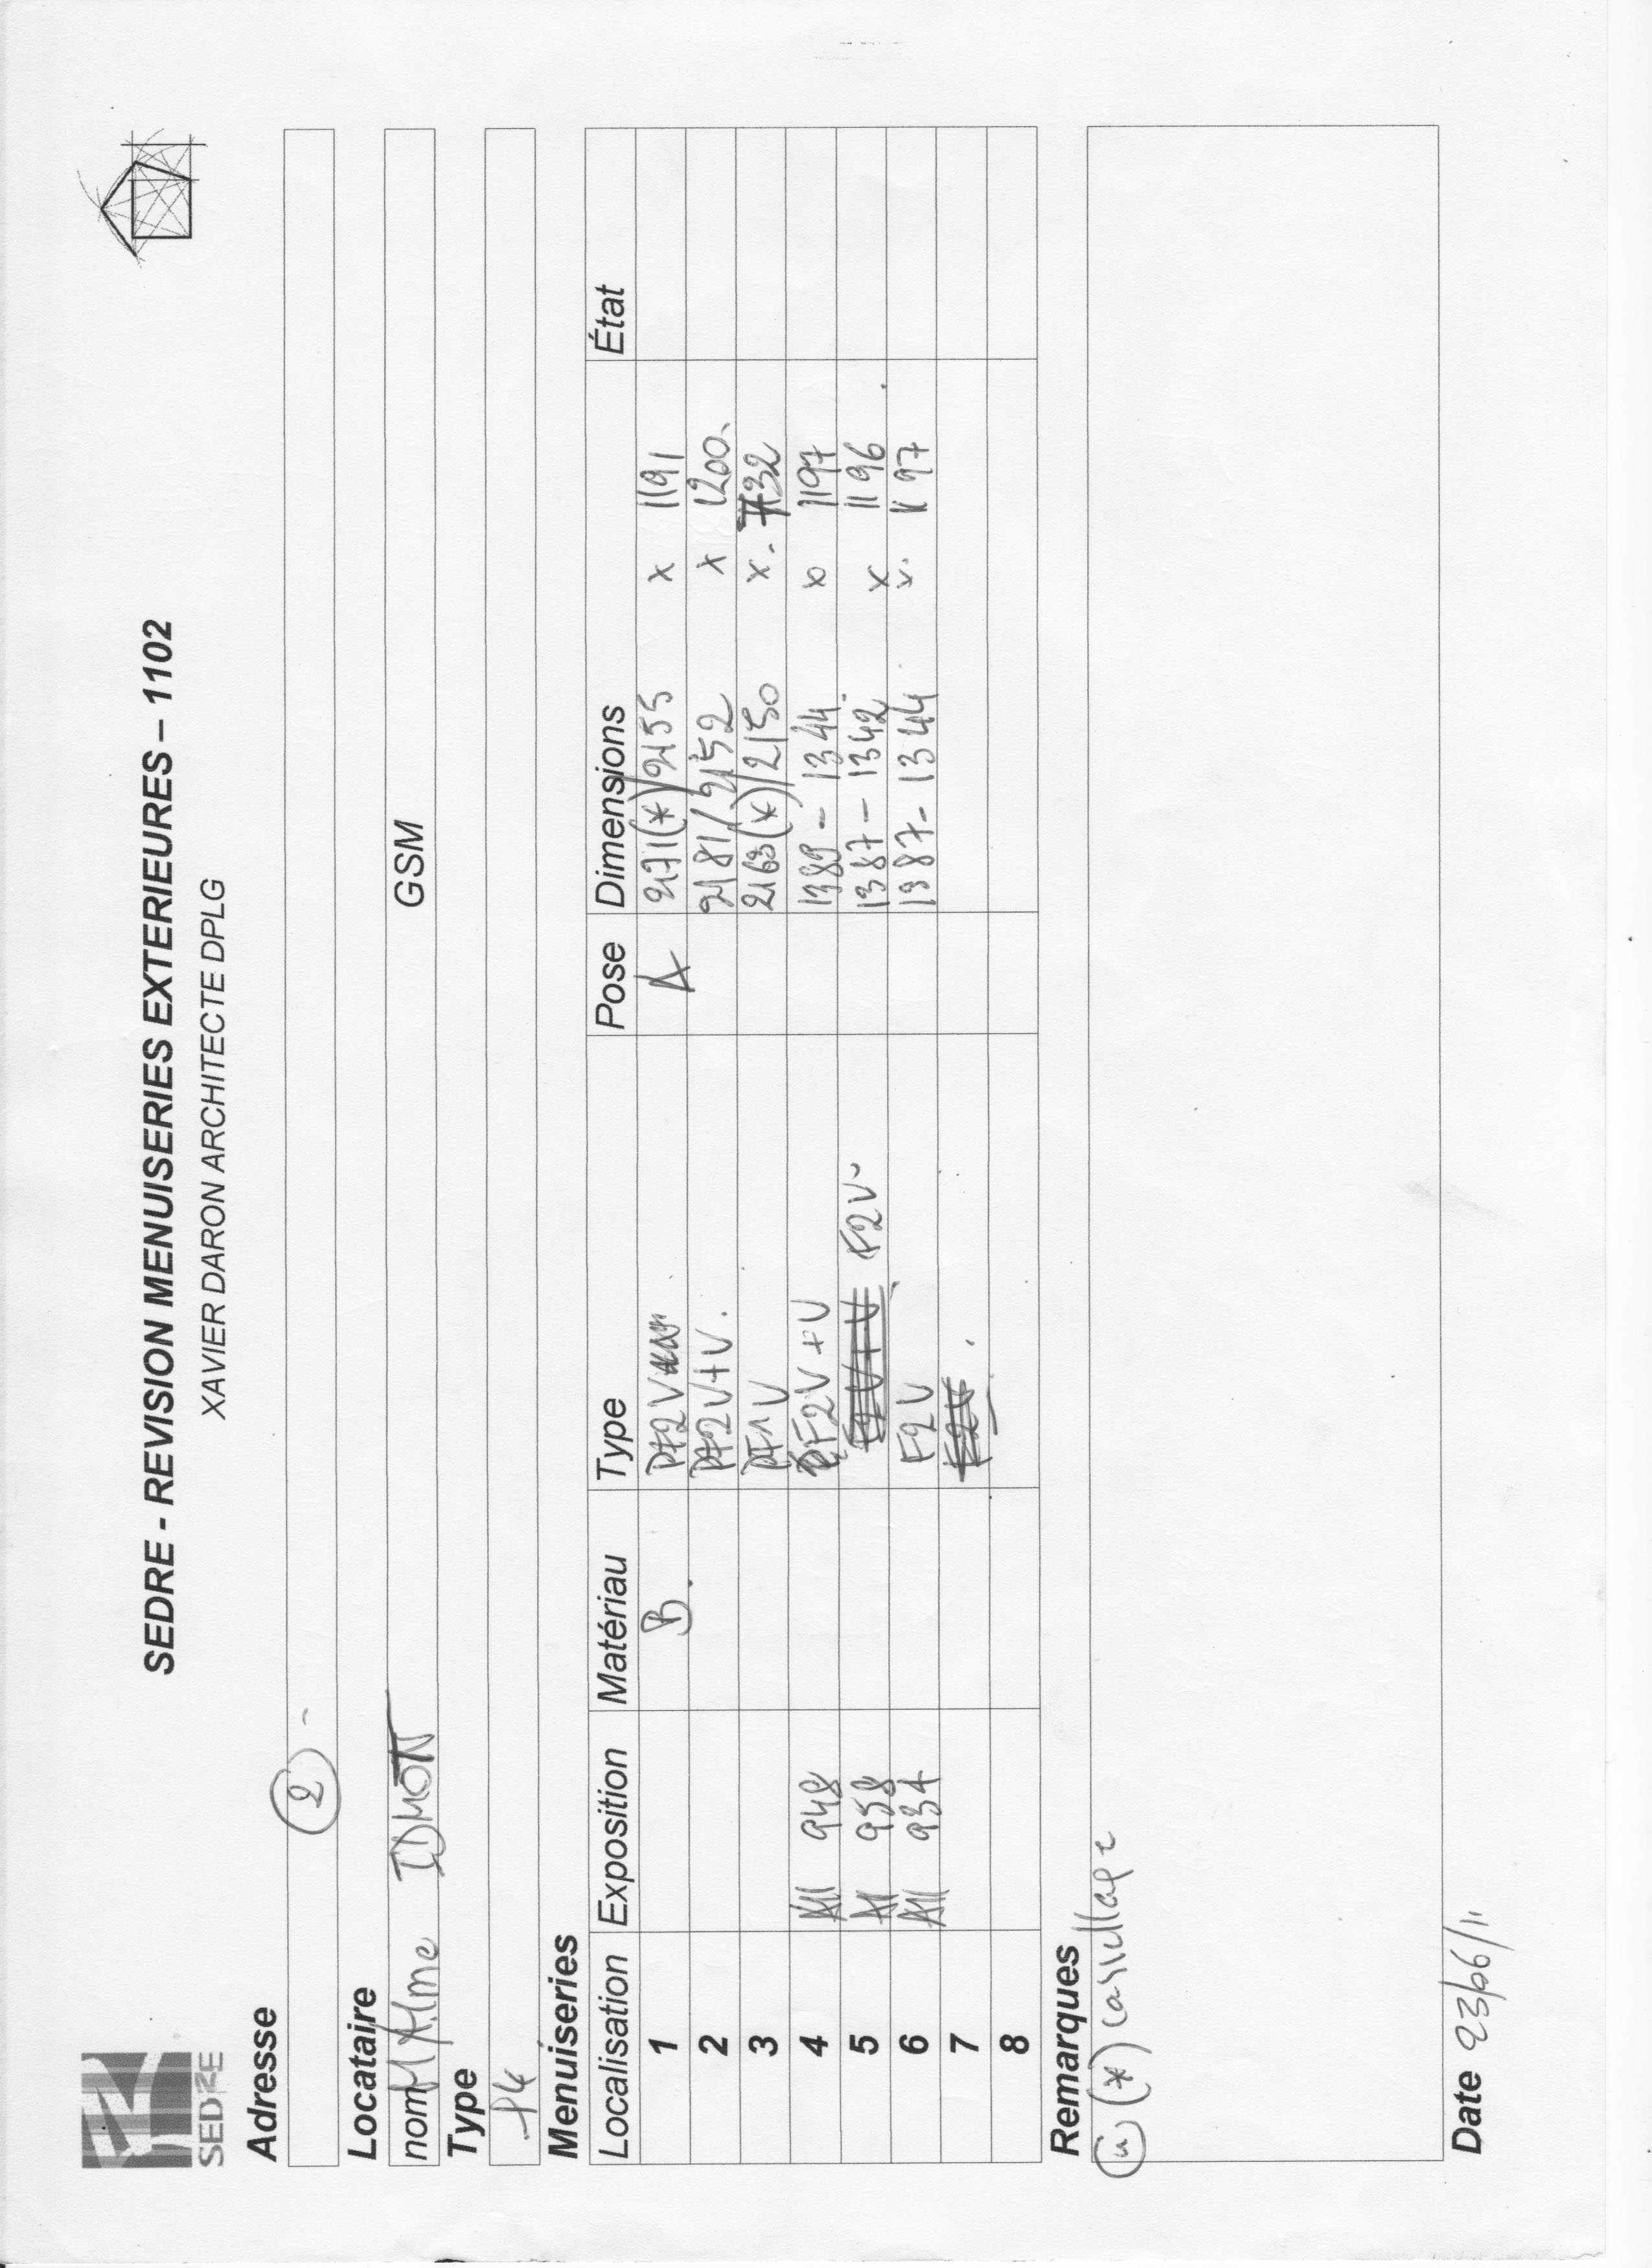 SEDRE
SEDRE - REVISION MENUISERIES EXTERIEURES – 1102
XAVIER DARON ARCHITECTE DPLG
Adresse
2 -
Locataire
nom M Mme IDMONT GSM
Type
Menuiseries
Localisation Exposition Matériau Type Pose Dimensions État
1 B. PF2V A 2171(*)/2155 x 1191
2 PF2V+V. 2181/2152 x 1200.
3 PF1V 2163(*)/2150 x. 732
4 All 948 F2V+V 1389 - 1344 x 1197
5 All 958 F2V 1387 - 1342. x 1196
6 All 934 F2V 1387 - 1344 x. 1197
7
8
Remarques
(*) carrellage
Date 23/06/11